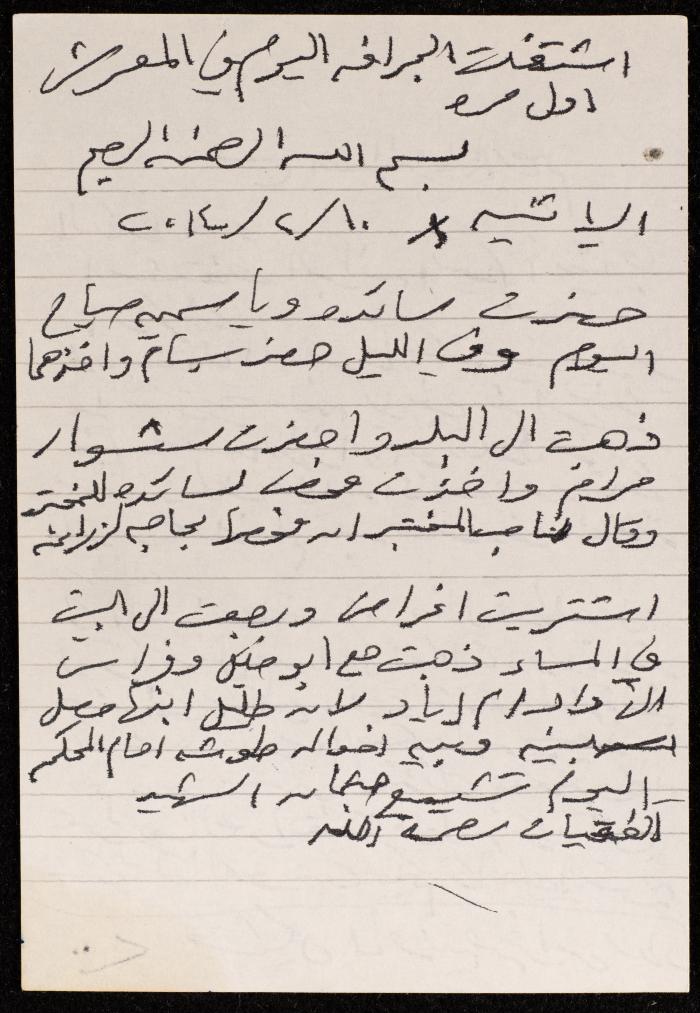 اشتغلت الجرافه اليوم في المعرش
اول مره
بسم الله الرحمن الرحيم
الاثنين ٢٠١٣/٢/١٨
حضرت سائده وياسمين صباح
اليوم وفي الليل حضر بسام واخذهما
ذهبت الى البلد واحضرت سشوار
مرام واخذت فحص لسائده للمختبر
وقال صاحب المختبر انه فحصها بحاجه لزراعه
اشتريت اغراض ورجعت الى البيت
في المساء ذهبت مع ابو خليل وفراس
الى دار ام اياد لانه ابنها حصل
بينه وبين اخواله طوشه امام المحكمه
اليوم تشييع جثمان الشهيد
رحمة الله